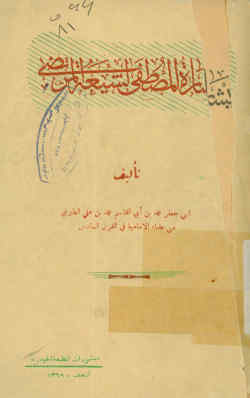 بشارة المصطفى لشيعة المرتضى
تأليف
أبي جعفر محمد بن أبي القاسم محمد بن علي الطبري
من علماء الإمامية في القرن السادس
منشورات المطبعة الحيدرية
النجف - ١٣٦٩